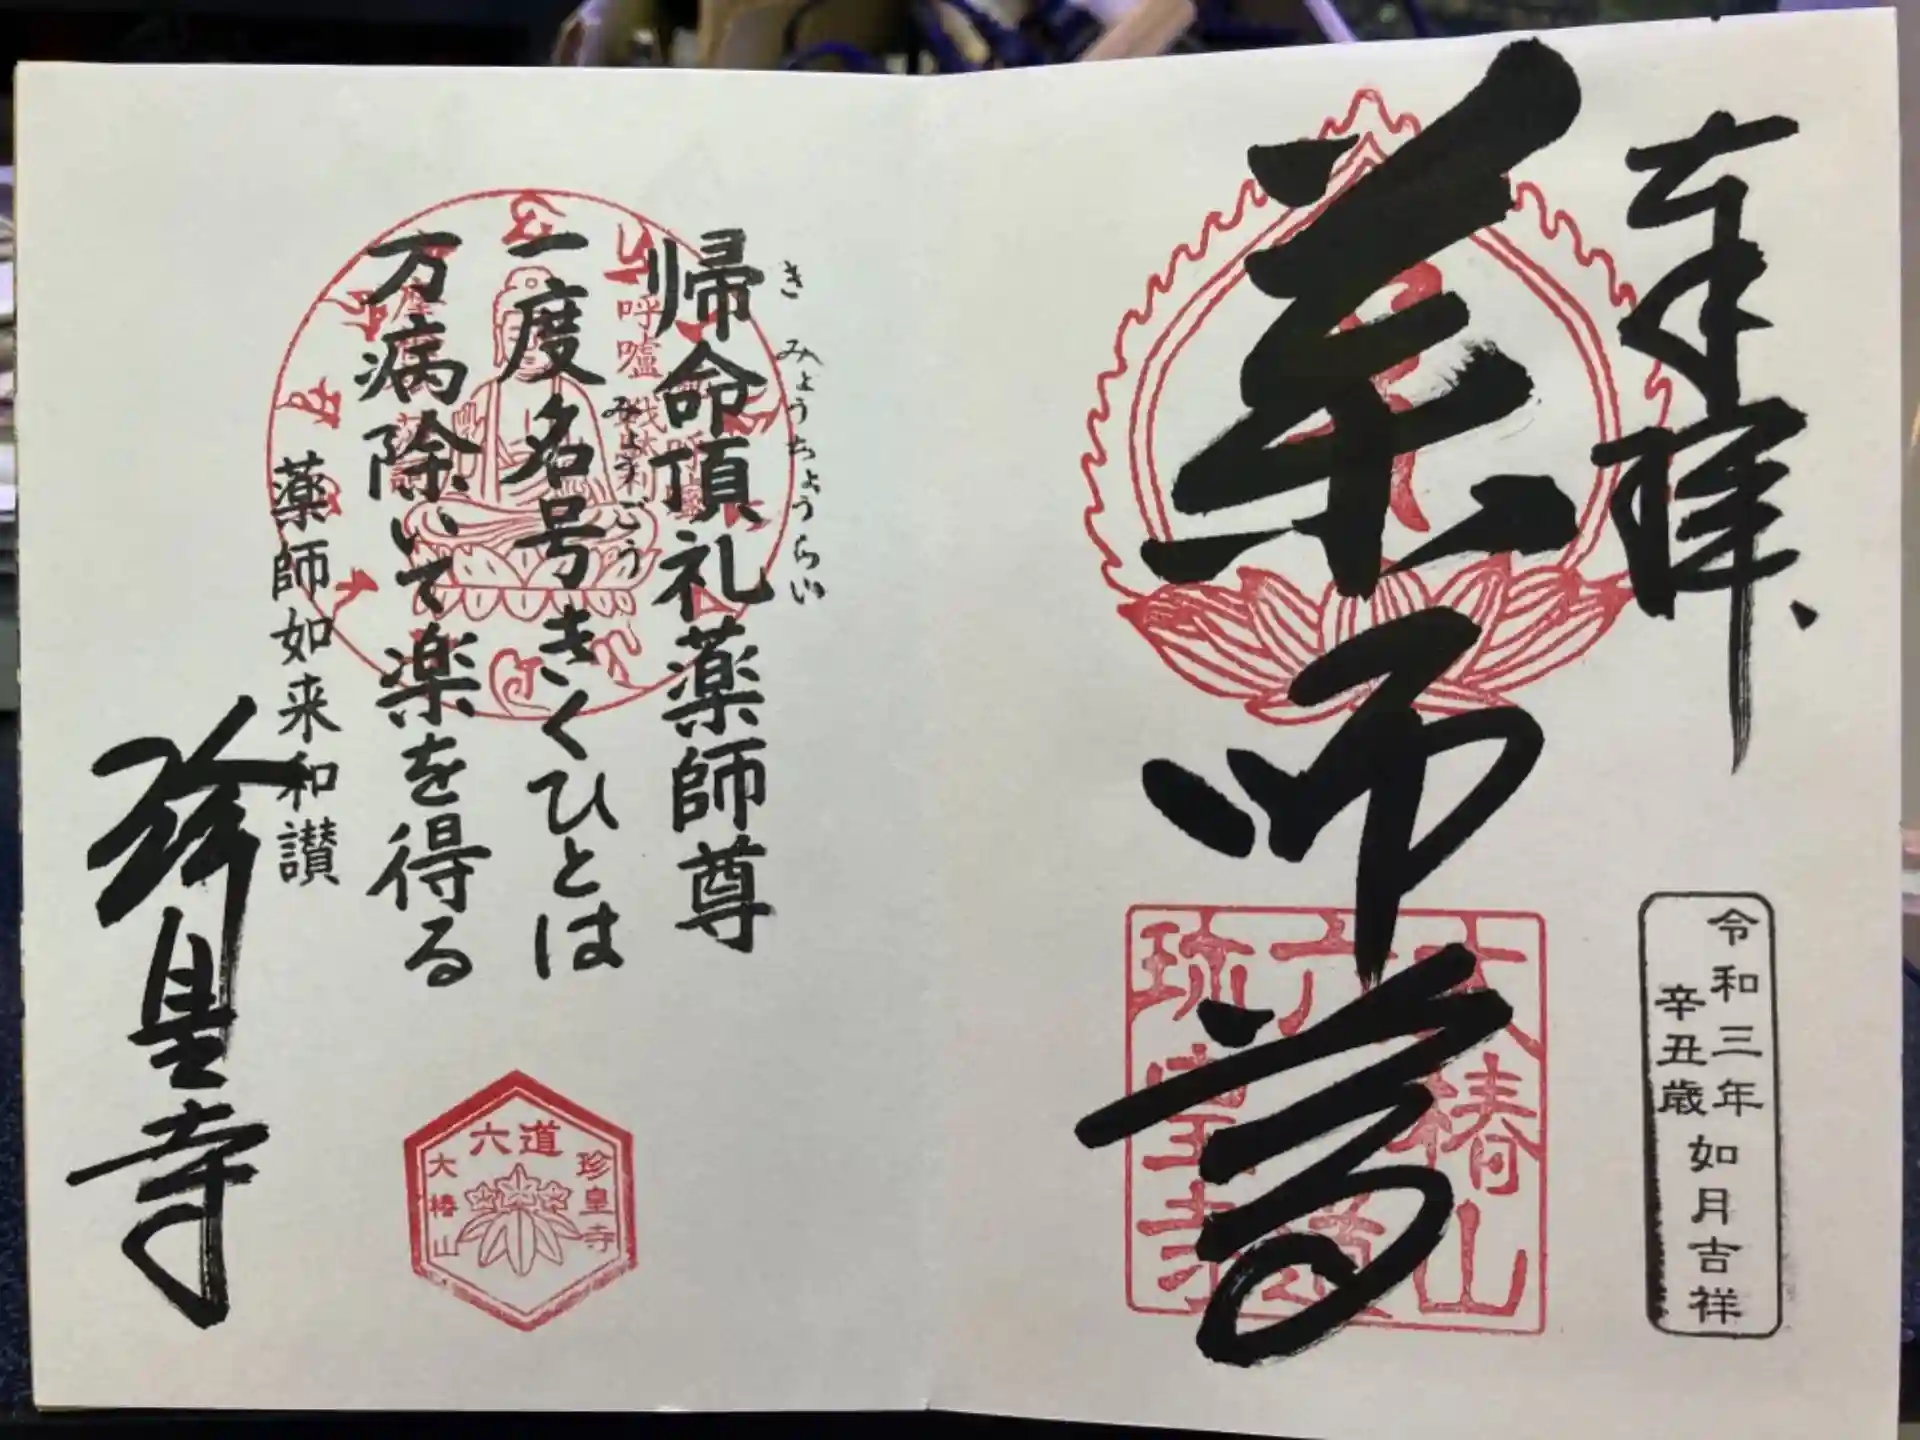 奉拝
薬師尊
大椿山
六道
珍皇寺
令和三年
辛丑歳
如月吉祥
帰命頂礼薬師尊
きみょうちょうらい
一度名号きくひとは
みょうごう
万病除いて楽を得る
薬師如来和讃
珍皇寺
六道
珍皇寺
大椿山